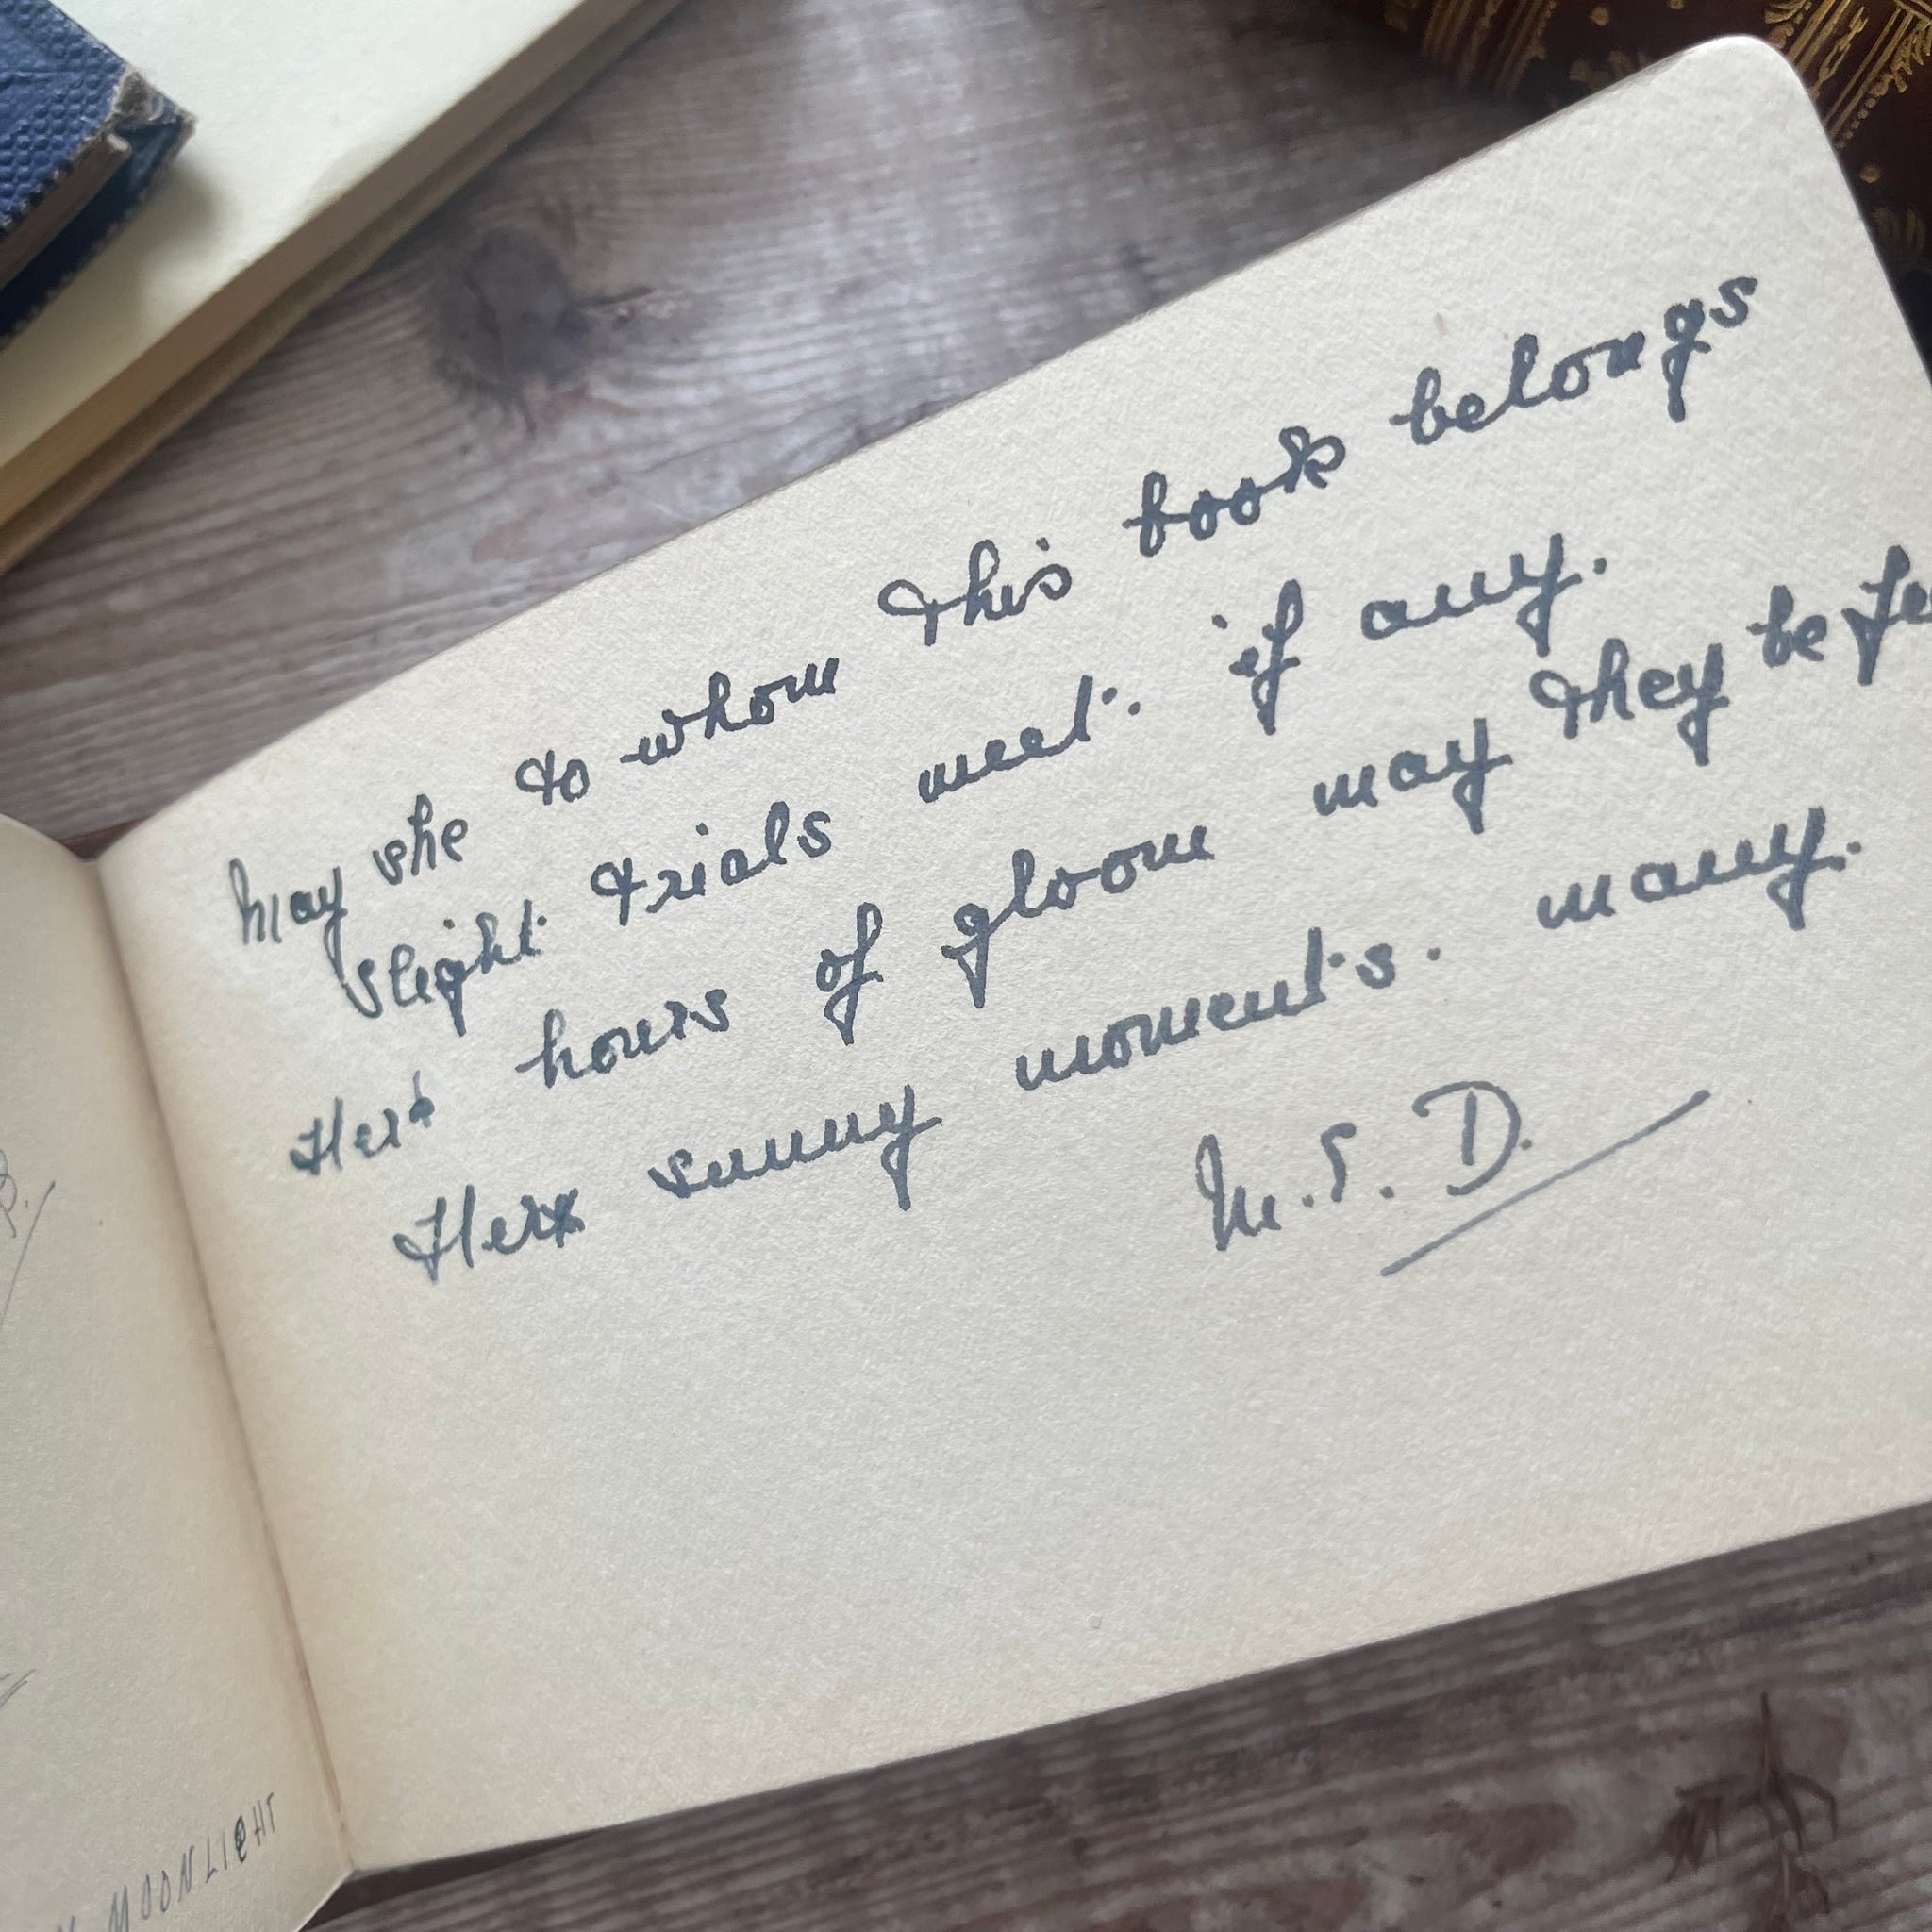 May she to whom this book belongs
slight trials meet. if any.
Her hours of gloom may they be
Her sunny moments. many.
M.S.D.
B.
MOONLIGHT